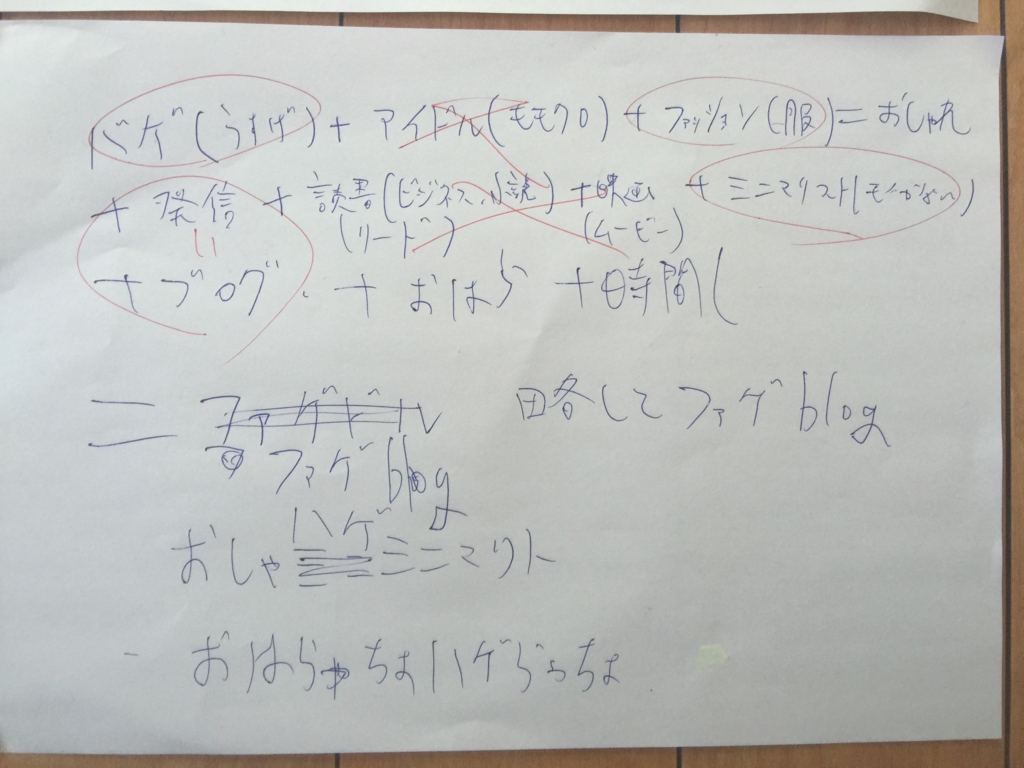 ハゲ(うすげ)+アイドル(モモクロ)+ファッション(服)=おしゃれ
+発信+読書(ビジネス、小説)+映画+ミニマリスト(モノがない)
(リード)(ムービー)
+ブログ.+おはら+時間(
=ファゲドル 略してファゲblog
ファゲblog
ハゲ
おしゃミニマリト
おはらゃちょハゲらっちょ